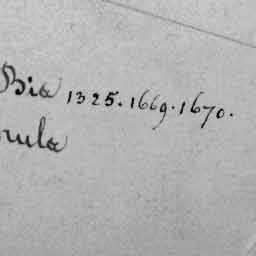 Bia 1325. 1669. 1670.
nula